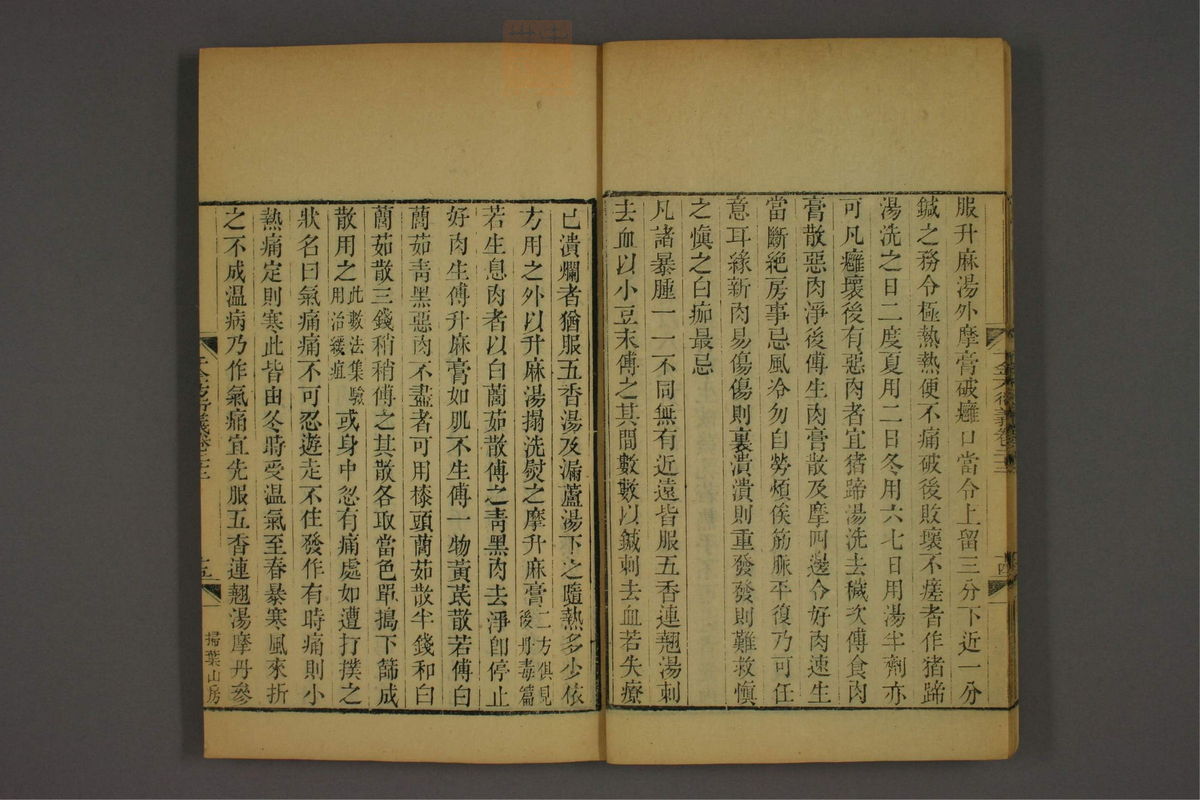 服升麻湯外摩膏破癰口當令上留三分下近一分
鍼之務令極熱熱便不痛破後敗壞不瘥者作猪蹄
湯洗之日二度夏用二日冬用六七日用湯半劑亦
可凡癰壞後有惡肉者宜猪蹄湯洗去穢次傅食肉
膏散惡肉淨後傅生肉膏散及摩四邊令好肉速生
當斷絕房事忌風冷勿自勞煩俟筋脈平復乃可任
意耳緣新肉易傷傷則裏潰潰則重發發則難救愼
之愼之白痂最忌
凡諸暴腫一一不同無有近遠皆服五香連翹湯刺
去血以小豆末傅之其間數數以鍼刺去血若失療
已潰爛者猶服五香湯及漏蘆湯下之隨熱多少依
方用之外以升麻湯搨洗熨之摩升麻膏二方俱見後丹毒篇
若生息肉者以白䕡茹散傅之青黑肉去淨卽停止
好肉生傅升麻膏如肌不生傅一物黃芪散若傅白
䕡茹青黑惡肉不盡者可用桼頭䕡茹散半錢和白
䕡茹散三錢稍稍傅之其散各取當色單搗下篩成
散用之此數法集驗用治緩疽或身中忽有痛處如遭打撲之
狀名曰氣痛痛不可忍遊走不住發作有時痛則小
熱痛定則寒此皆由冬時受温氣至春暴寒風來折
之不成温病乃作氣痛宜先服五香連翹湯摩丹參
掃葉山房